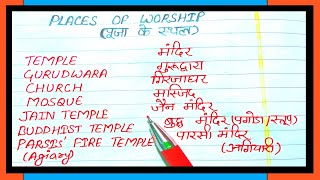 PLACES OF WORSHIP
(पूजा के स्थल)
TEMPLE मंदिर
GURUDWARA गुरुद्वारा
CHURCH गिरजाघर
MOSQUE मस्जिद
JAIN TEMPLE जैन मंदिर
BUDDHIST TEMPLE बुद्ध मंदिर (पगोडा/स्तूप)
PARSIS' FIRE TEMPLE पारसी मंदिर
(Agiary) (अगियारी)